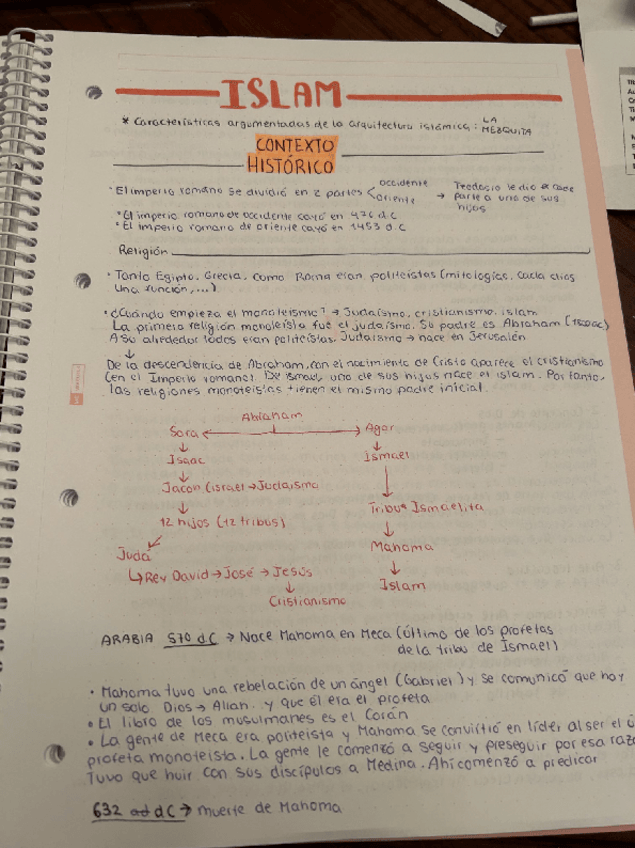 ISLAM
* Características argumentadas de la arquitectura islámica: LA MEZQUITA
CONTEXTO
HISTÓRICO
· El imperio romano se dividió en 2 partes < occidente oriente → Teodosio le dio a cada parte a uno de sus hijos
· El imperio romano de occidente cayó en 476 d.C
· El Imperio romano de oriente cayó en 1453 d.C
Religión
· Tanto Egipto, Grecia, como Roma eran politeístas (mitologías, cada dios
una función,...)
· ¿Cuándo empieza el monoteísmo? → Judaísmo, cristianismo, islam
La primera religión monoteísta fue el judaísmo. Su padre es Abraham
A su alrededor todos eran politeístas. Judaísmo → nace en Jerusalén
↓
De la descendencia de Abraham, con el nacimiento de Cristo aparece el cristianismo
(en el Imperio romano) De ismael, uno de sus hijos nace el islam. Por tanto,
las religiones monoteístas tienen el mismo padre inicial.
Abraham
Sara ← → Agar
↓ ↓
Isaac Ismael
↓ ↓
Jacon (israel → Judaismo
↓ Tribus Ismaelita
12 hijos (12 tribus) ↓
Judá Mahoma
↳ Rey David → José → Jesús ↓
↓ Islam
Cristianismo
ARABIA 570 d.C → Nace Mahoma en Meca (último de los profetas
de la tribu de Ismael)
· Mahoma tuvo una rebelación de un ángel (Gabriel) y se comunicó que hay
un solo Dios → Allah, y que él era el profeta
· El libro de los musulmanes es el Corán
· La gente de Meca era politeista y Mahoma se convirtió en líder al ser el ú
profeta monoteista. La gente le comenzó a seguir y preseguir por esa razó
Tuvo que huir con sus discípulos a Medina. Ahí comenzó a predicar
632 d.C → muerte de Mahoma